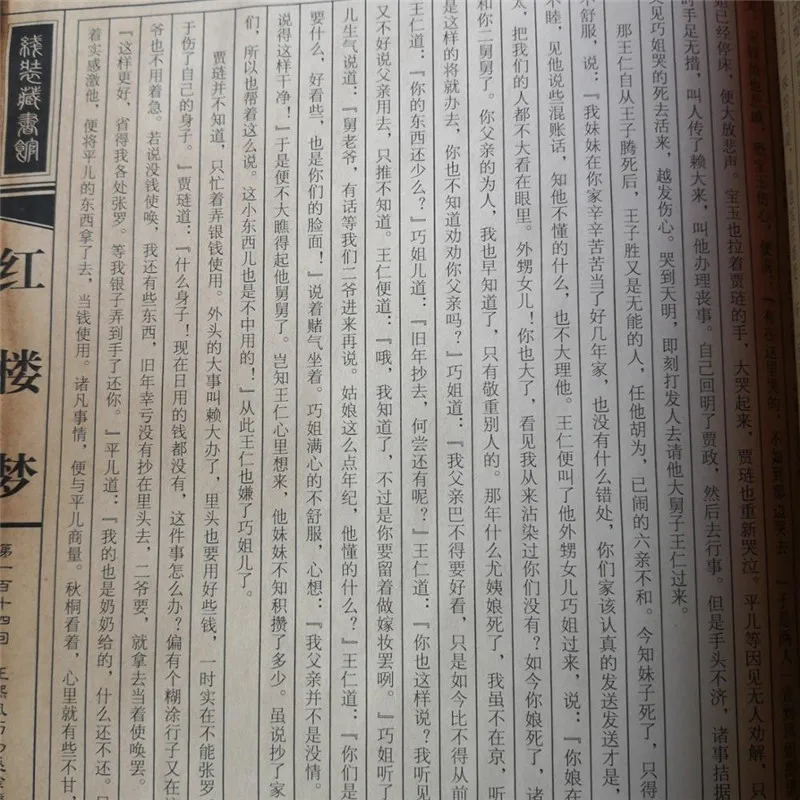 姐已经停床，便大放悲声。宝玉也拉着贾琏的手，大哭起来，贾琏也重新哭泣。平儿等因见无人劝解，只
时手足无措，叫人传了赖大来，叫他办理丧事。自己回明了贾政，然后去行事。但是手头不济，诸事拮据
又见巧姐哭的死去活来，越发伤心。哭到天明，即刻打发人去请他大舅子王仁过来。
那王仁自从王子腾死后，王子胜又是无能的人，任他胡为，已闹的六亲不和。今知妹子死了，只得
舒服，说：『我妹妹在你家辛辛苦苦当了好几年家，也没有什么错处，你们家该认真的发送发送才是，
不睦，见他说些混账话，知他不懂的什么，也不大理他。王仁便叫了他外甥女儿巧姐过来，说：『你娘在
太，把我们的人都不大看在眼里。外甥女儿！你也大了，看见我从来沾染过你们没有？如今你娘死了，诸
和你二舅舅了。你父亲的为人，我也早知道了，只有敬重别人的。那年什么尤姨娘死了，我虽不在京，听
是这样的将就办去，你也不知道劝劝你父亲吗？』巧姐道：『我父亲巴不得要好看，只是如今比不得从前
王仁道：『你的东西还少么？』巧姐儿道：『旧年抄去，何尝还有呢？』王仁道：『你也这样说？我听见
又不好说父亲用去，只推不知道。王仁便道：『哦，我知道了，不过是你要留着做嫁妆罢咧。』巧姐听了
儿生气说道：『舅老爷，有话等我们二爷进来再说。姑娘这么点年纪，他懂的什么？』王仁道：『你们是
要什么，好看些，也是你们的脸面！』说着赌气坐着。巧姐满心的不舒服，心想：『我父亲并不是没情。
说得这样干净！』于是便不大瞧得起他舅舅了。岂知王仁心里想来，他妹妹不知积攒了多少。虽说抄了家
们，所以也帮着这么说。这小东西儿也是不中用的！』从此王仁也嫌了巧姐儿了。
贾琏并不知道，只忙着弄银钱使用。外头的大事叫赖大办了，里头也要用好些钱，一时实在不能张罗
于伤了自己的身子。』贾琏道：『什么身子！现在日用的钱都没有，这件事怎么办？偏有个糊涂行子又在
爷也不用着急。若说没钱使唤，我还有些东西，旧年幸亏没有抄在里头去，二爷要，就拿去当着使唤罢。
『这样更好，省得我各处张罗。等我银子弄到手了还你。』平儿道：『我的也是奶奶给的，什么还不还。
着实感激他，便将平儿的东西拿了去，当钱使用。诸凡事情，便与平儿商量。秋桐看着，心里就有些不甘，
线装藏書館
红楼梦
第一百十四回